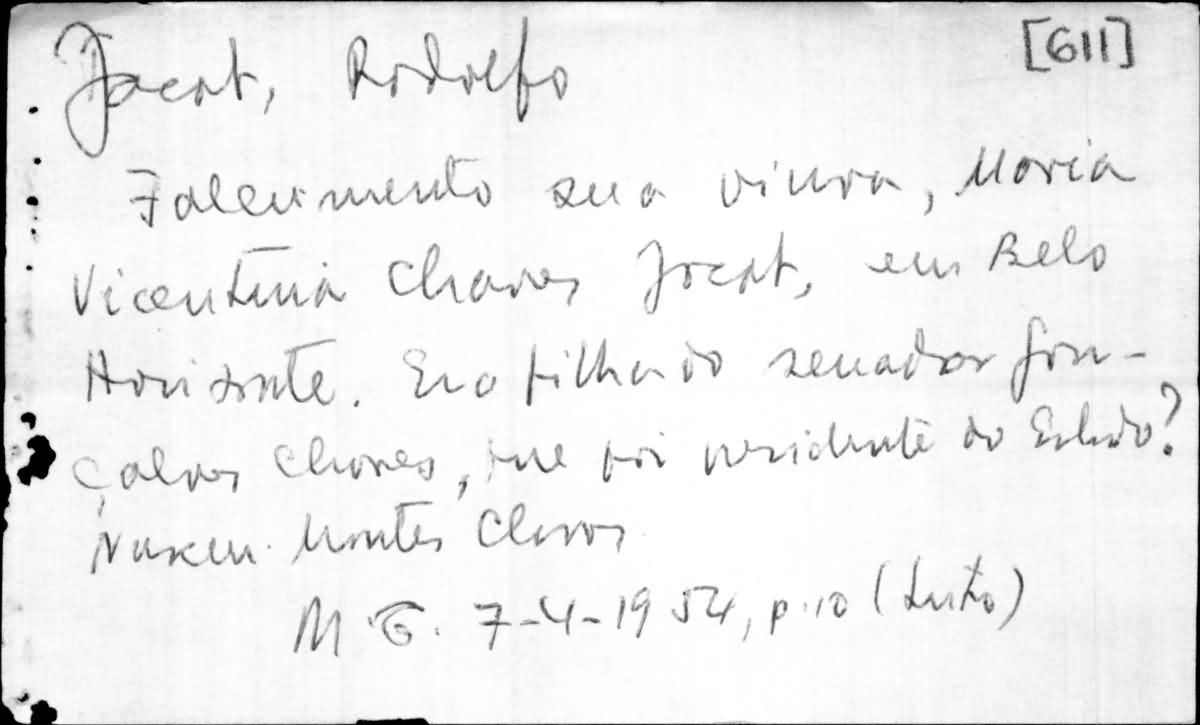 [611]
Jacob, Rodolfo
Falecimento sua viuva, Maria
Vicentina Chaves Jacob, em Belo
Horizonte. Era filha do senador Gon-
çalves Chaves, que foi presidente do Estado?
Nasceu Montes Claros
M.G. 7-4-1954, p.10 (Luto)